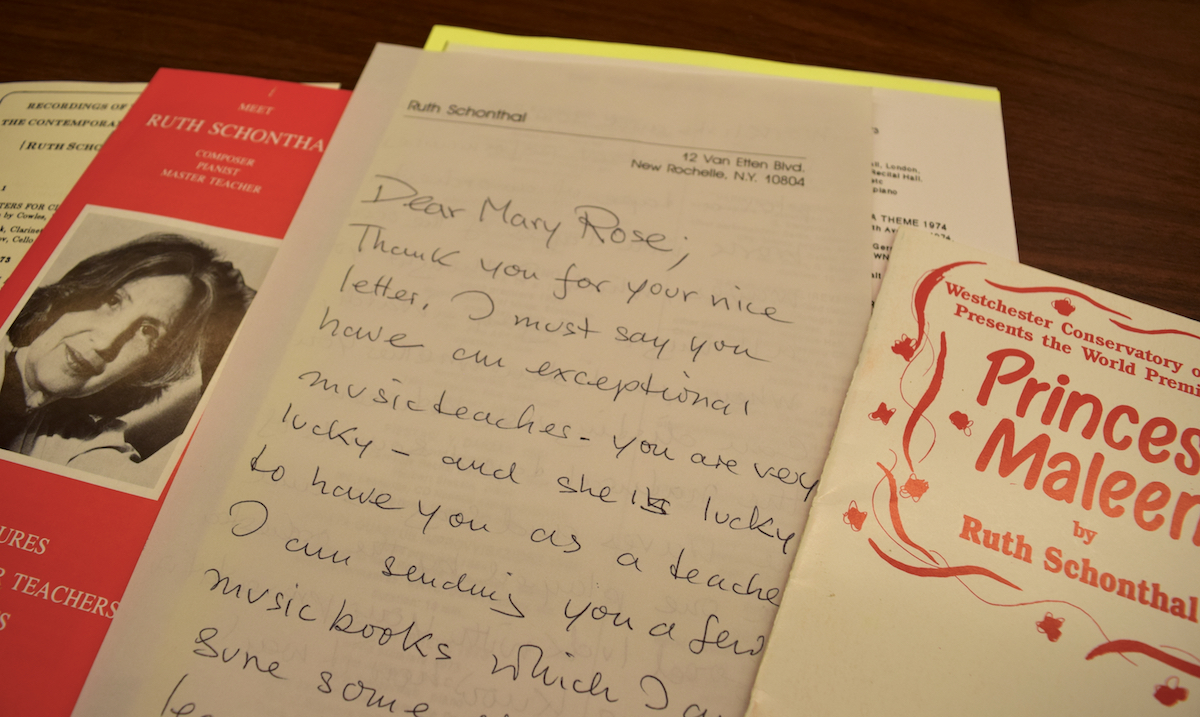 RECORDINGS OF
THE CONTEMPORA
RUTH SCHO
MEET
RUTH SCHONTHA
COMPOSER
PIANIST
MASTER TEACHER
TEACHERS
Ruth Schonthal
12 Van Etten Blvd.
New Rochelle, N.Y. 10804
Dear Mary Rose;
Thank you for your nice
letter. I must say you
have an exceptional
music teacher - you are very
lucky - and she is lucky
to have you as a teache
I am sending you a few
music books which I a
sure some
London,
Recital Hall.
piano
THEME 1974
Westchester Conservatory o
Presents the World Premi
Princes
Maleen
by
Ruth Schonthal